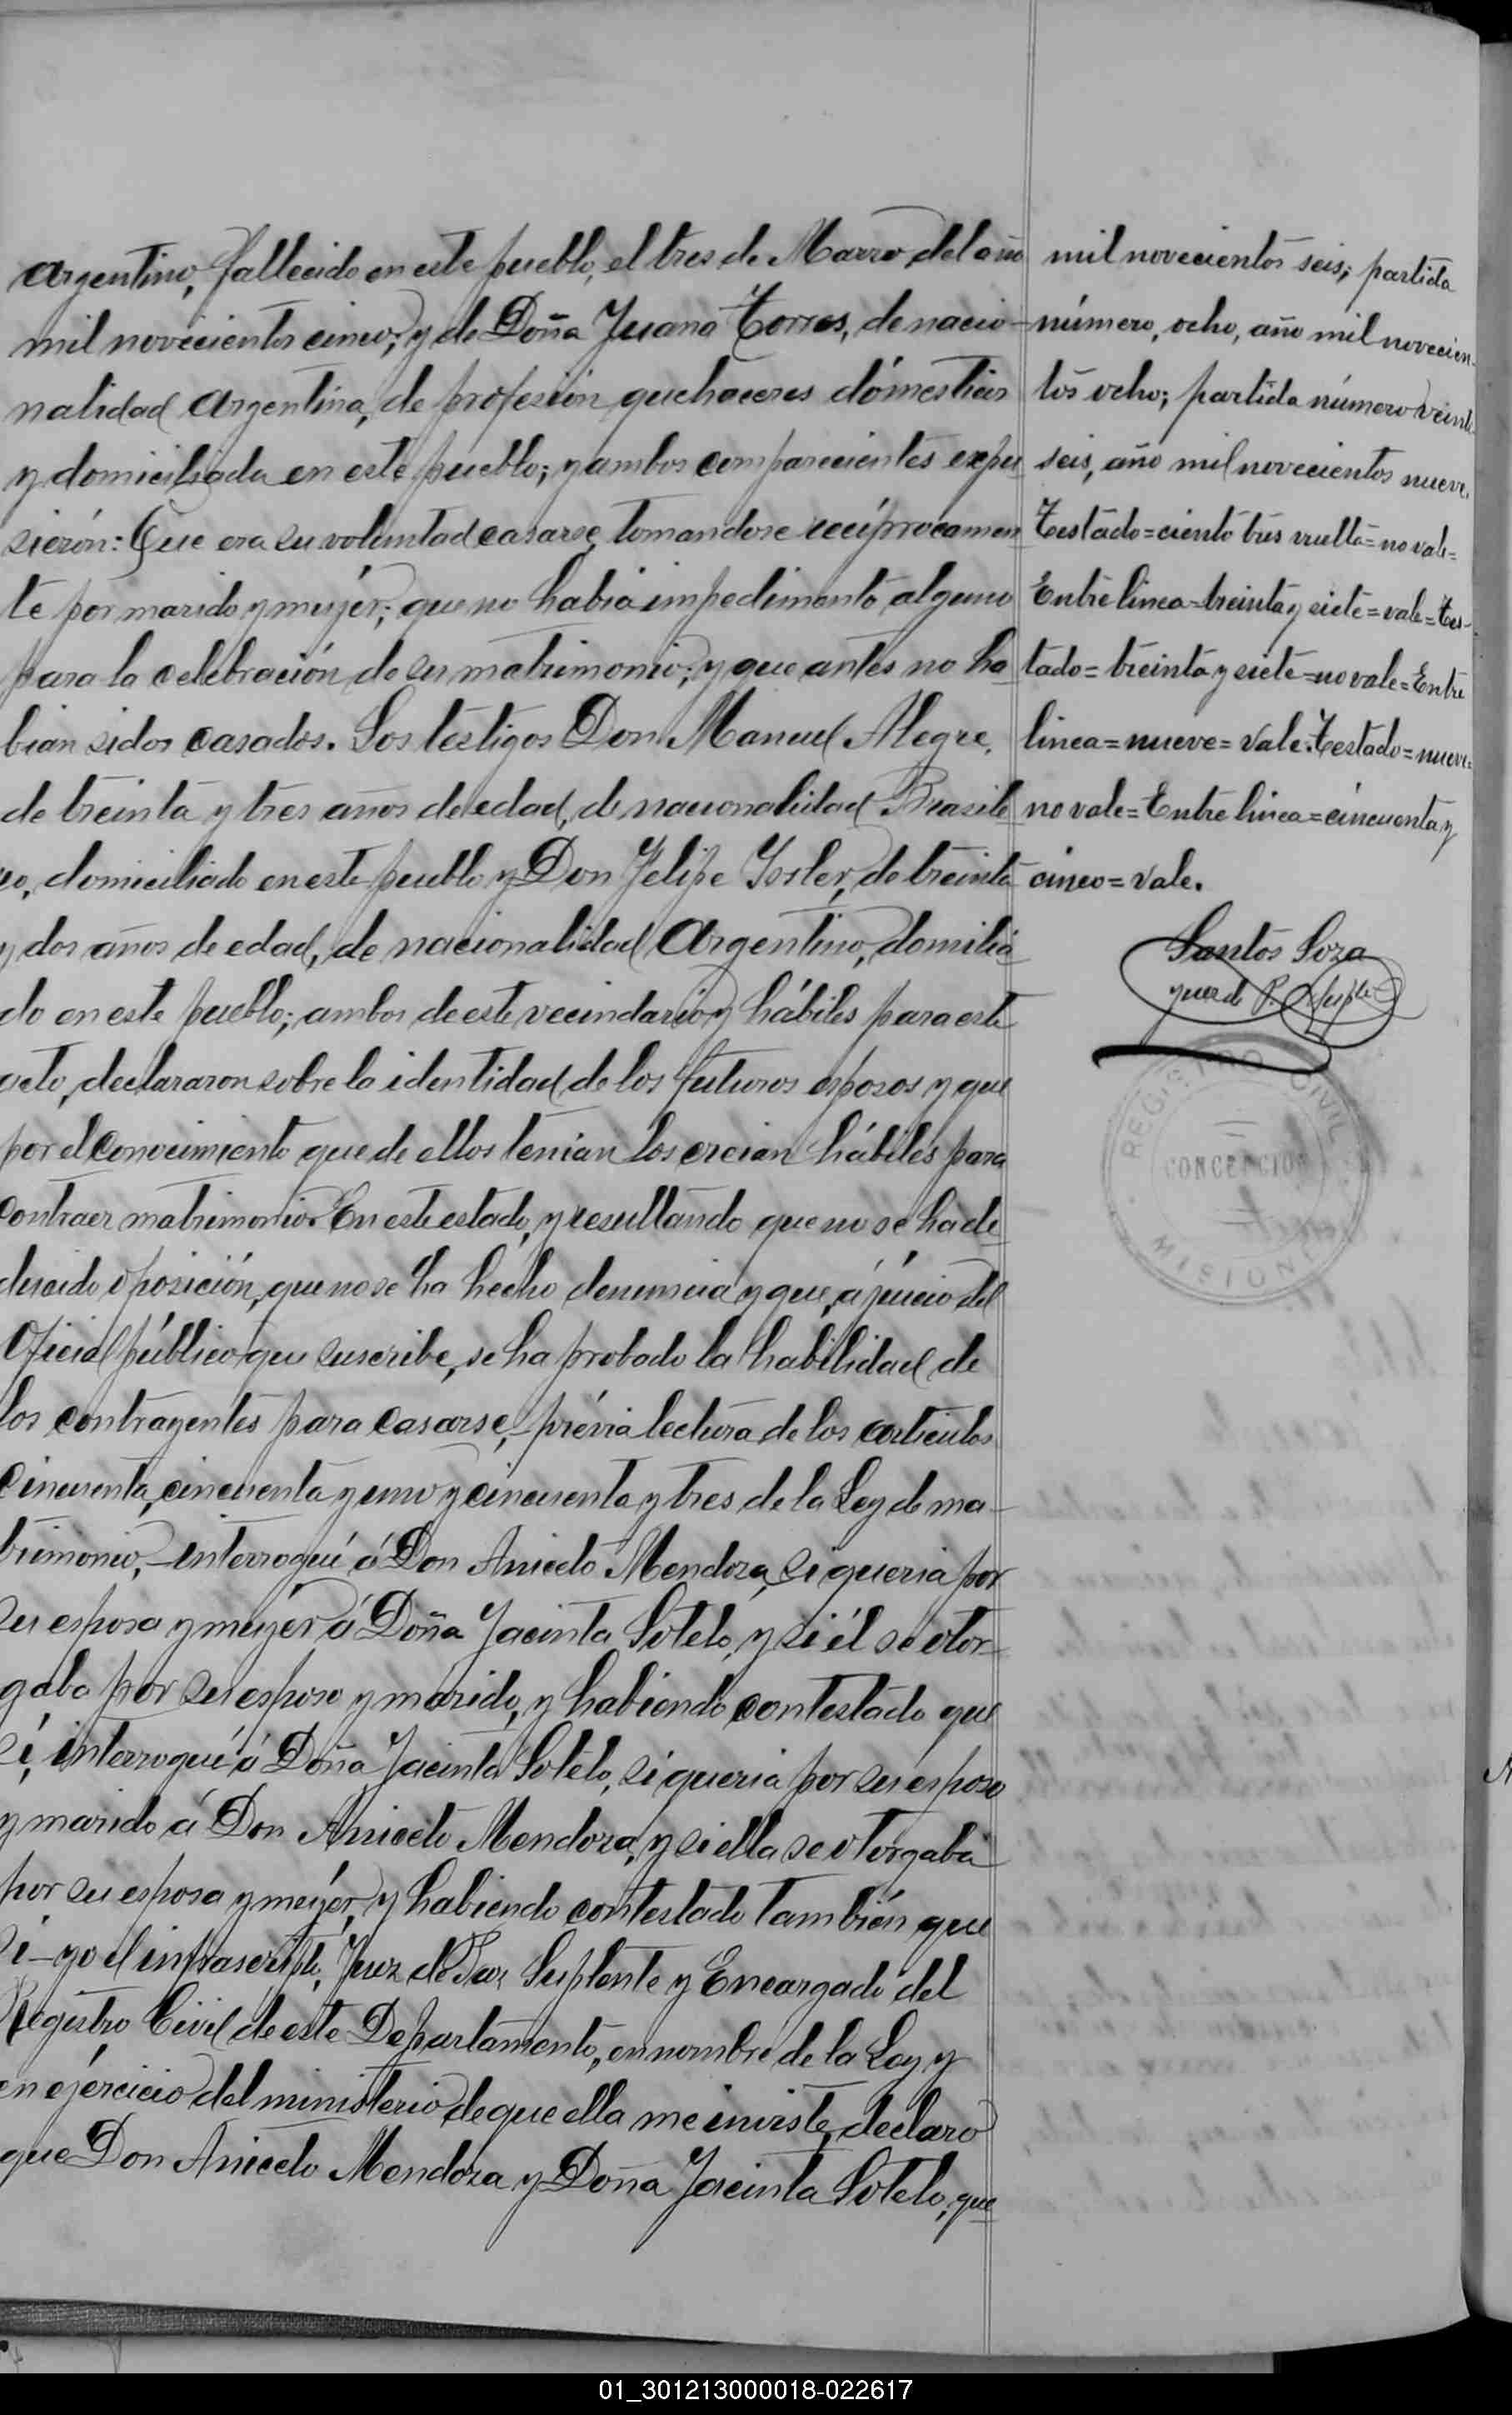 Argentino, fallecido en este pueblo, el tres de Marzo del año
mil novecientos cinco; y de Doña Juana Torres, de nacio-
nalidad Argentina, de profesión quehaceres dómesticos
y domiciliada en este pueblo; y ambos comparecientes expu
sierón: Que era su voluntad casarse, tomandose recíprocamen
te por marido y mujér; que no habia impedimento alguno
para la celebración de su matrimonio; y que antes no ha
bian sidos casados. Los testigos Don Manuel Alegre,
de treinta y tres años de edad, de nacionalidad Brasile
ro, domiciliado en este pueblo y Don Felipe Isler, de treinta
y dos años de edad, de nacionalidad Argentino, domilia
do en este pueblo; ambos de este vecindario y hábiles para este
acto, declararon sobre la identidad de los futuros esposos y que
por el conocimiento que de ellos tenian los creian hábiles para
contraer matrimonio. En este estado, y resultando que no se ha de
ducido oposición, que no se ha hecho denuncia y que, á juicio del
Oficial público que suscribe, se ha probado la habilidad de
los contrayentes para casarse,- prévia lectura de los articulos
cincuenta, cincuenta y uno y cincuenta y tres de la Ley de ma-
trimonio,- interrogué á Don Aniceto Mendoza, si queria por
su esposa y mujér á Doña Jacinta Sotelo, y si él se otor-
gaba por su esposo y marido, y habiendo contestado que
sí, interrogué á Doña Jacinta Sotelo, si queria por su esposo
y marido á Don Aniceto Mendoza, y si ella se otorgaba
por su esposa y mujér, y habiendo contestado también que
si- yo el infrascripto, Juez de Paz Suplente y Encargado del
Registro Civil de este Departamento, en nombre de la Ley y
en ejércicio del ministerio de que ella me inviste, declaro
que Don Aniceto Mendoza y Doña Jacinta Sotelo, que
mil novecientos seis; partida
número, ocho, año mil novecien-
tos ocho; partida número veinte
seis, año mil novecientos nueve.
Testado=ciento tres vuelta=no vale=
Entre linea=treinta y siete=vale=Tes-
tado=treinta y siete=no vale=Entre
linea=nueve=vale.Testado=nueve=
no vale=Entre linea=cincuenta y
cinco=vale.
Santos Soza
juez de P. Suplte
REGISTRO CIVIL
CONCEPCION
MISIONES
01_301213000018-022617